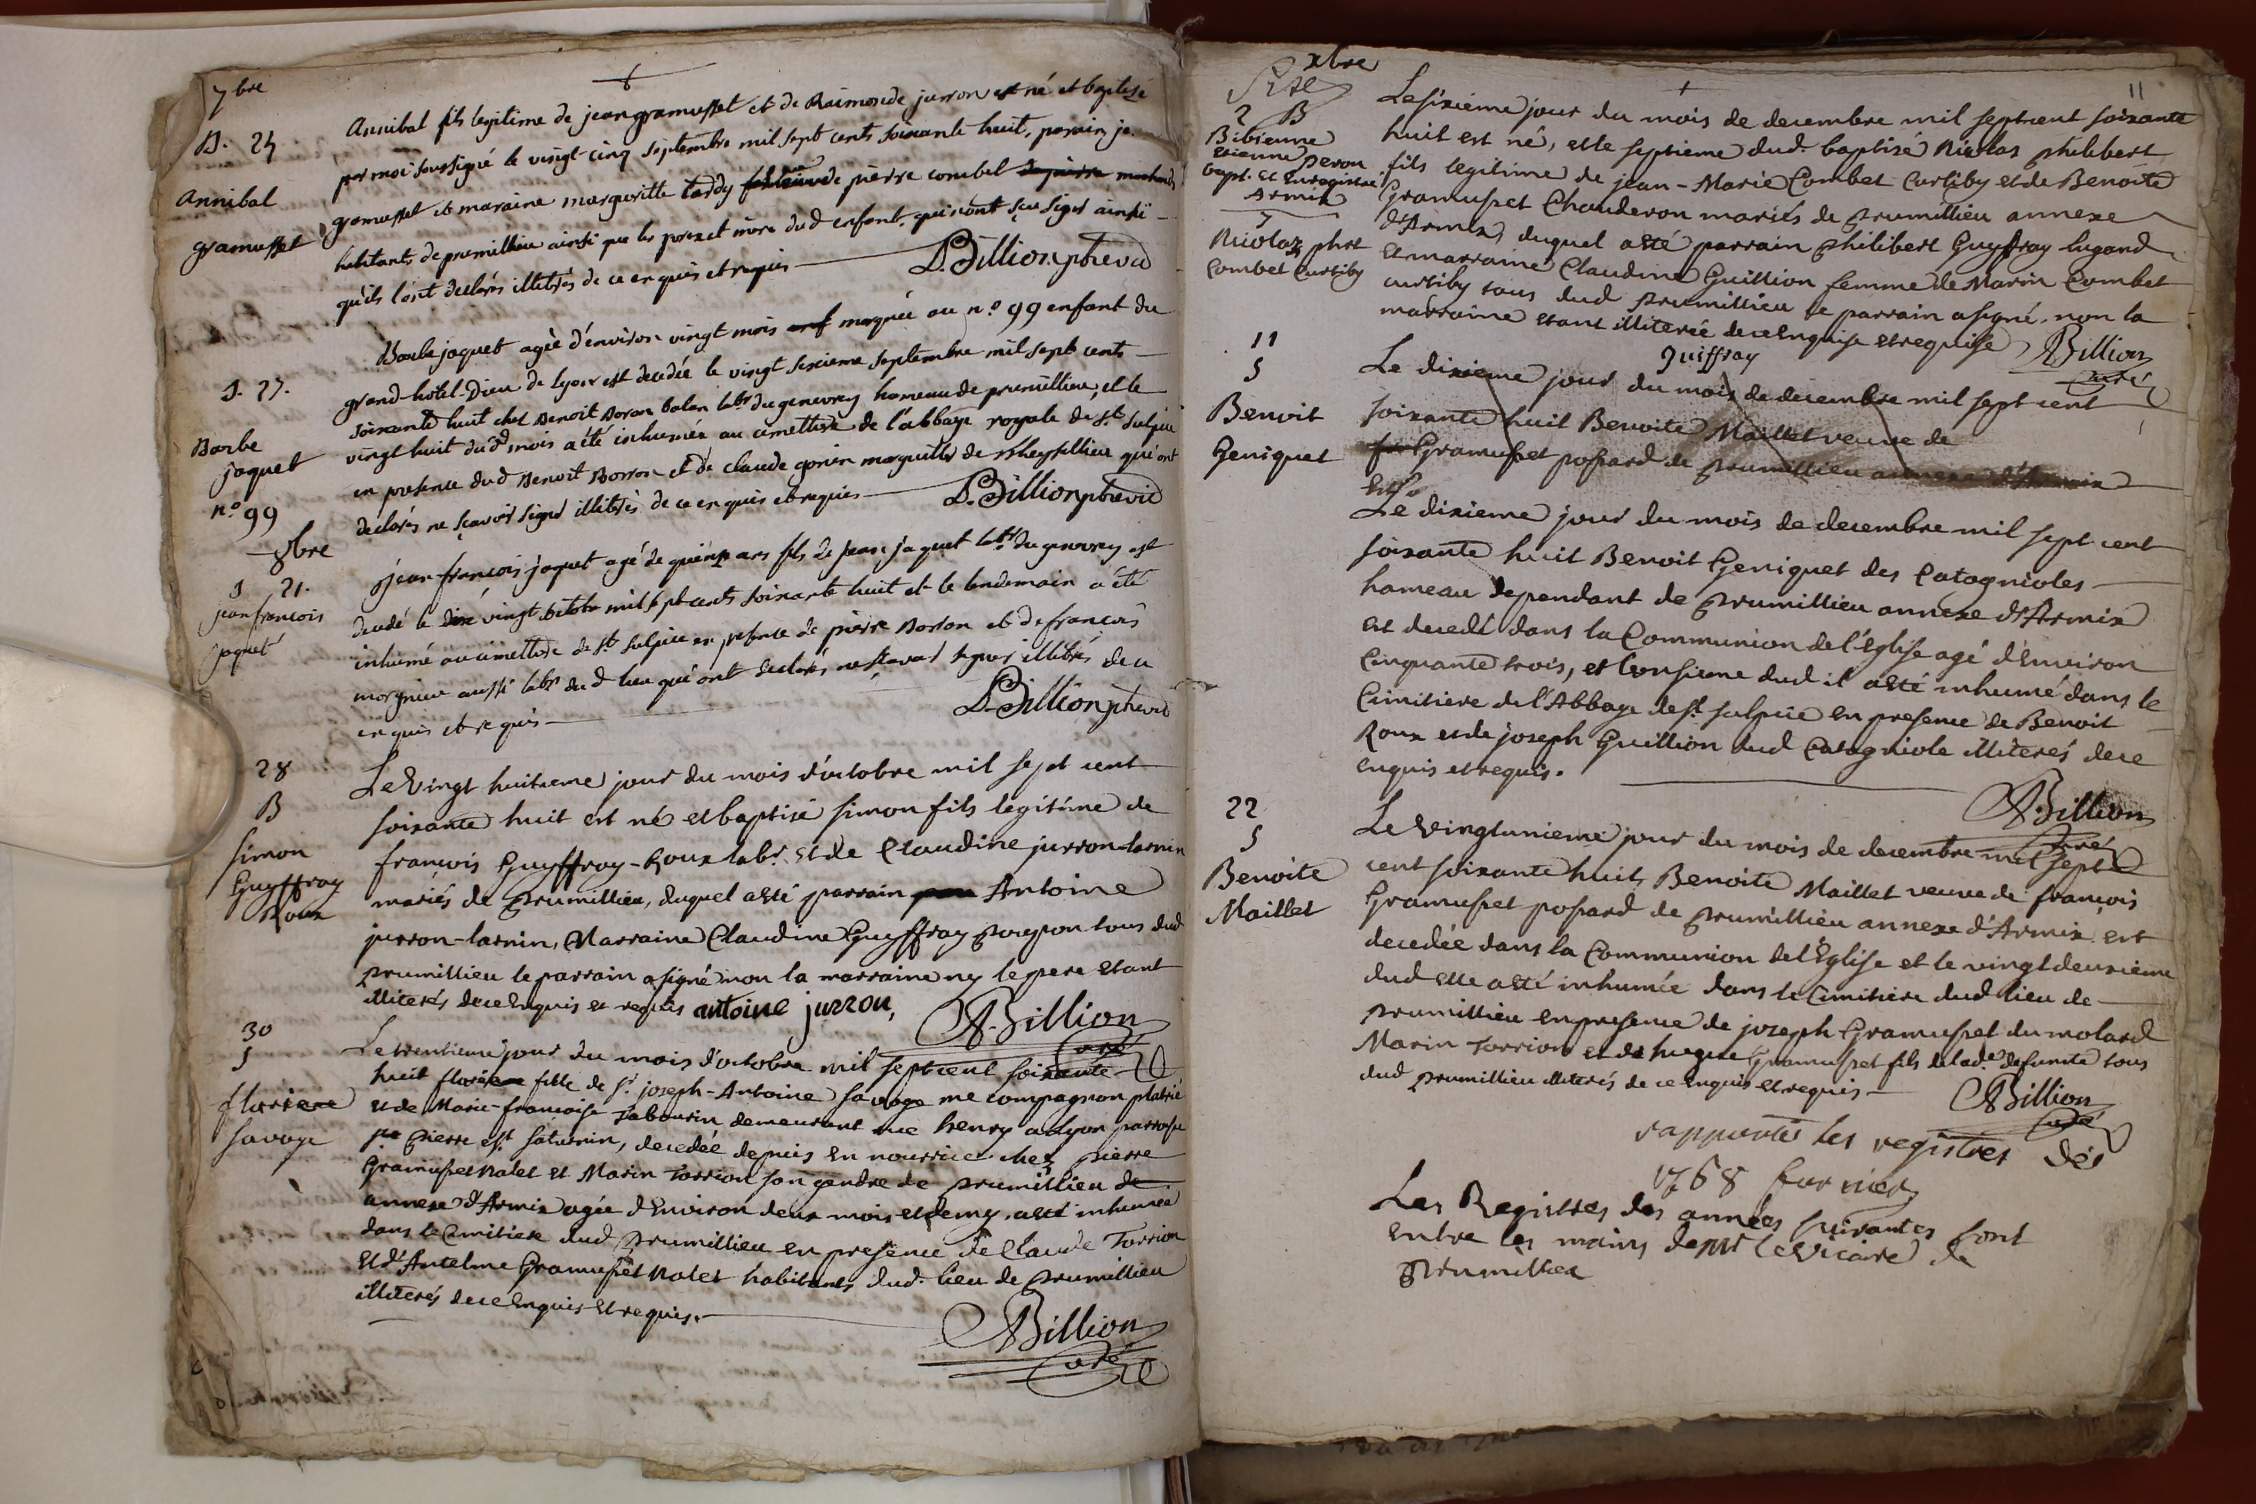 7bre
B. 25
Annibal
gramusset
Annibal fils legitime de jean gramusset et de Raimonde jurron est né et baptisé
par moi soussigné le vingt cinq septembre mil sept cents soixante huit, parain je
gramusset et maraine margueritte tardy de pierre combet
habitants de premillieu ainsi que les perex et mère dud enfant, qui n'ont sçu signer ainsi
qu'ils l'ont declarés illitrés de ce enquis et requis
D. Billion ptre vic
J. 27.
Barbe
jaquet
n.º 99
Barbe jaquet agée d'environ vingt mois marquée au n.º 99 enfant du
grand-hôtel-Dieu de Lyon est decedée le vingt sixieme septembre mil sept cents
soixante huit chez Benoit Borron balan labr du genevrey hameau de premillieu, et le
vingt huit dud mois a été inhumée au cimettiere de l'abbaye royale de st Sulpice
en presence dud Benoit Borron et de claude gonin marguillier de Rheyssillieu qui ont
declarés ne sçavoir signer illitrés de ce enquis et requis
D. Billion ptre vic
8bre
J 21.
jean francois
jaquet
jean françois jaquet agé de quinze ans fils de jean jaquet labr du genevrey est
decedé le vingt octobre mil sept cents soixante huit et le lendemain a été
inhumé au cimettiere de st sulpice en presence de pierre Borron et de francois
morgnieu aussi labr dud lieu qui ont declarés ne sçavoir signer illitrés de ce
enquis et requis
D. Billion ptre vic
28
B
Simon
Guyffray
Roux
Le Vingt huitieme jour du mois d'octobre mil sept cent
soixante huit est né et baptisé simon fils legitime de
françois Guyffray-Roux labr. et de Claudine jurron-larnin
mariés de prumillieu, duquel a été parrain Antoine
jurron-larnin, Marraine Claudine Guyffray pougeon tous dud
prumillieu le parrain a signé non la marraine ny le pere etant
illiterés de ce enquis et requis antoine jurron,
A. Billion
curé
30
S
florience
Savoye
Le trentieme jour du mois d'octobre mil septcent soixante
huit florience fille de sr joseph-Antoine Savoye me compagnon platrié
et de Marie-françoise Tabourin demeurant rue henry a Lyon parroisse
St Pierre est Saturnin, decedée depuis en nourrice chez pierre
Gramusset nalet et Marin Torrion son gendre de prumillieu
annexe d'Armix agée d'Environ deux mois et demy, a été inhumée
dans le Cimitiere dud prumillieu en presence de Claude Torrion
et d'Antelme Gramusset nalet habitants dud. lieu de prumillieu
illiterés de ce enquis et requis.
A Billion
curé
xbre
11
2 B
Bibienne
etienne peron
bapt. et Enregistrée
Armix
7
Nicolaz phrt
Combet Curtiby
Le sixieme jour du mois de decembre mil septcent soixante
huit est né, et le septieme dud. baptisé Nicolas philibert
fils legitime de jean-Marie Combet Curtiby et de Benoite
Gramusset Chauderon mariés de prumillieu annexe
d'Armix, duquel a été parrain philibert Guyffray lugand
et marraine Claudine Guillion femme de Marin Combet
curtiby tous dud prumillieu le parrain a signé, non la
marraine etant illiterée de ce enquise et requise
Guiffray
A Billion
curé
11
S
Benoit
Geniquet
Le dixieme jour du mois de decembre mil sept cent
soixante huit Benoite Maillet veuve de
Gramusset possard de prumillieu annexe d'Armix
est
Le dixieme jour du mois de decembre mil sept cent
soixante huit Benoit Geniquet des Catagnioles
hameau dependant de prumillieu annexe d'Armix
est decedé dans la Communion de l'église agé d'Environ
Cinquante trois, et l'onsieme dud il a été inhumé dans le
Cimitiere de l'Abbaye de St sulpice en presence de Benoit
Roux et de joseph Guillion dud Catagniole illiterés de ce
enquis et requis.
A. Billion
curé
22
S
Benoite
Maillet
Le vingtunieme jour du mois de decembre mil sept
cent soixante huit Benoite Maillet veuve de françois
Gramusset possard de prumillieu annexe d'Armix est
decedée dans la Communion de l'Eglise et le vingtdeuxieme
dud elle a été inhumée dans le Cimitiere dud lieu de
prumillieu en presence de joseph Gramusset du molard
Marin Torrion et de hugue Gramusset fils de lade. defunte tous
dud prumillieu illiterés de ce enquis et requis
A Billion
curé
rapportés les registres dès
1768
Les Registres des années suivantes sont
entre les mains de Mr le Vicaire de
prumillieu